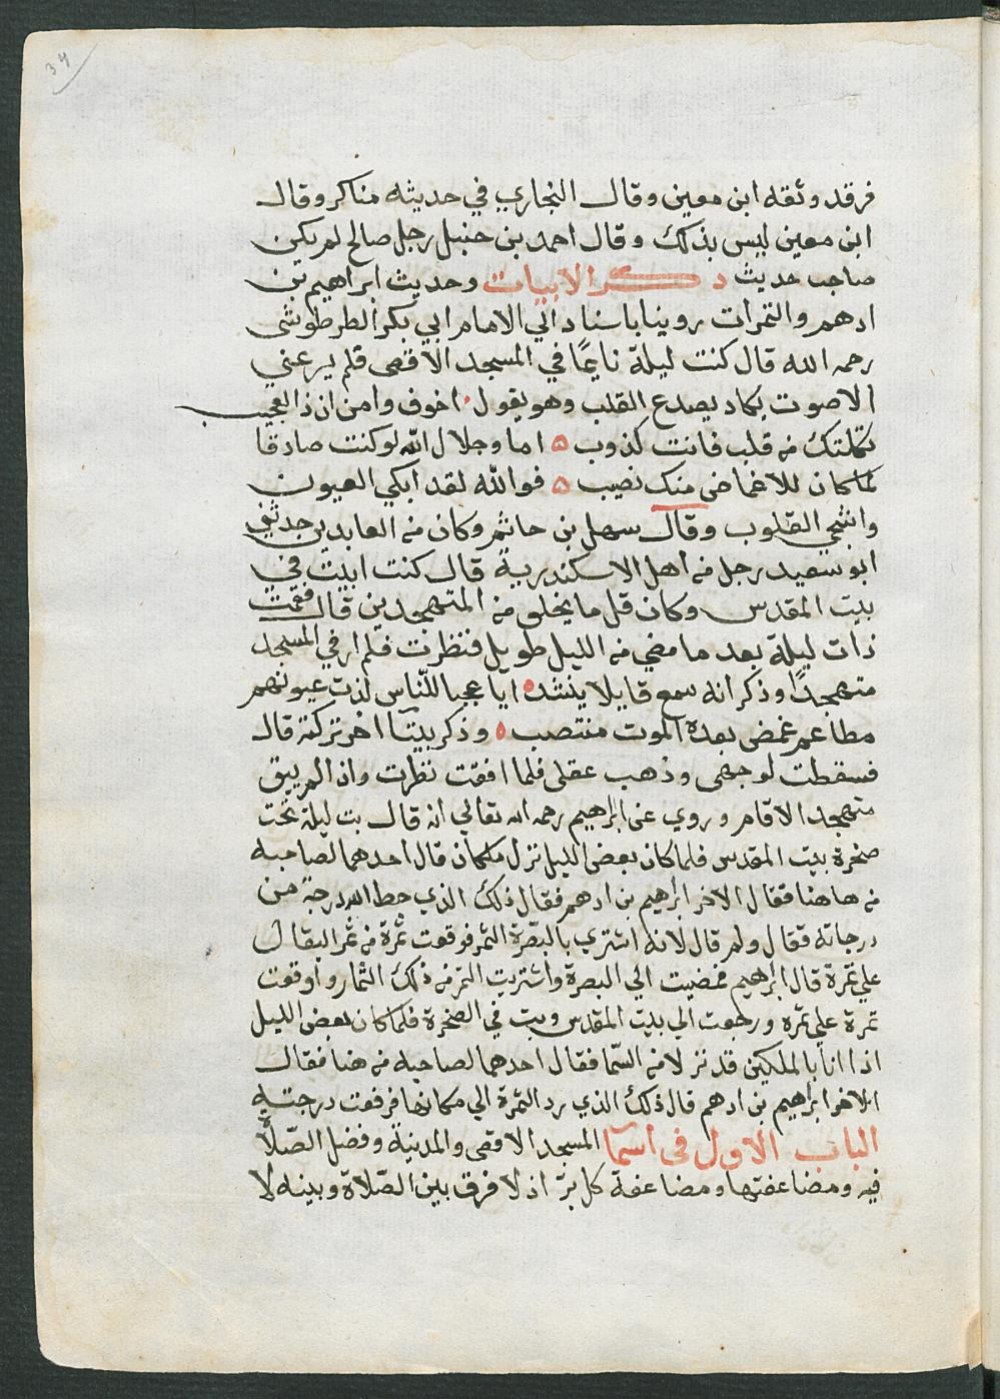 34
فرقد وثقه ابن معين وقال البخاري في حديثه مناكر وقال
ابن معين ليس بذلك وقال احمد بن حنبل رجل صالح لم يكن
صاحب حديث ذكر الابيات وحديث ابراهيم بن
ادهم والتمرات روينا باسناد الي الامام ابي بكر الطرطوشي
رحمه الله قال كنت ليلة نايمًا في المسجد الاقصى فلم يرعني
الاصوت يكاد يصدع القلب وهو يقول اخوف وامن ان ذا لعجيب
ثكلتك من قلب فانت كذوب ه اما وجلال الله لو كنت صادقا
لما كان للاغماض منك نصيب ه فوالله لقد ابكي العيون
وانشجي القلوب وقال سهل بن حاتم وكان من العابدين حدثني
ابو سعيد رجل من اهل الاسكندرية قال كنت ابيت في
بيت المقدس وكان قل ما يخلو من المتهجدين قال فقمت
ذات ليلة بعد ما مضي من الليل طويل فنظرت فلم ار في المسجد
متهجدًا وذكر انه سمع قايلا ينشد ه ايا عجبا للناس لذت عيونهم
مطاعم غمض بعده الموت منتصب ه وذكر بيتا اخر تركته قال
فسقطت لوجهى وذهب عقلى فلما افقت نظرت واذا لم يبق
متهجد الا قام وروي عن ابراهيم رحمه الله تعالي انه قال بت ليلة تحت
صخرة بيت المقدس فلما كان بعض الليل نزل ملكان قال احدهما لصاحبه
من هاهنا فقال الاخر ابراهيم بن ادهم فقال ذلك الذي حط الله درجة من
درجاته فقال ولم قال لانه اشتري بالبصرة التمر فوقعت تمرة من تمر البقال
علي تمرة قال ابراهيم فمضيت الي البصرة واشتريت التمر من ذلك التمار واوقعت
تمرة علي تمره ورجعت الي بيت المقدس وبت في الصخرة فلما كان بعض الليل
اذا انا بالملكين قد نزلا من السما فقال احدهما لصاحبه من هنا فقال
الاخر ابراهيم بن ادهم قال ذلك الذي رد التمرة الي مكانها فرفعت درجته
الباب الاول في اسما المسجد الاقصى والمدينة وفضل الصلاة
فيه ومضاعفتها ومضاعفة كل بر اذ لا فرق بين الصلاة وبينه لا